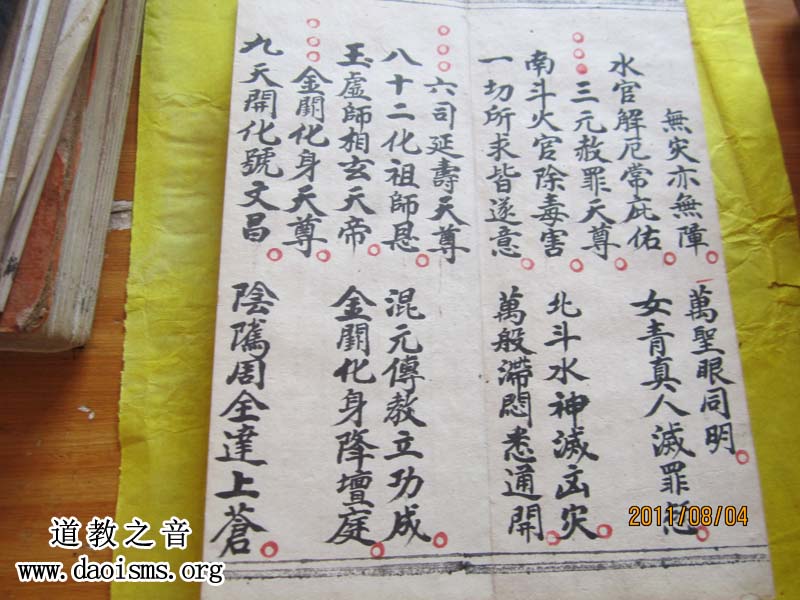 無灾亦無障
萬聖眼同明
水官解厄常庇佑
女青真人滅罪
三元赦罪天尊
南斗火官除毒害
北斗水神滅凶灾
一切所求皆遂意
萬般滯悶悉通開
六司延壽天尊
八十二化祖師恩
混元傳教立功成
玉虛師相玄天帝
金闕化身降壇庭
金闕化身天尊
九天開化號文昌
陰隲周全達上蒼
2011/08/04
道教之音
www.daoisms.org